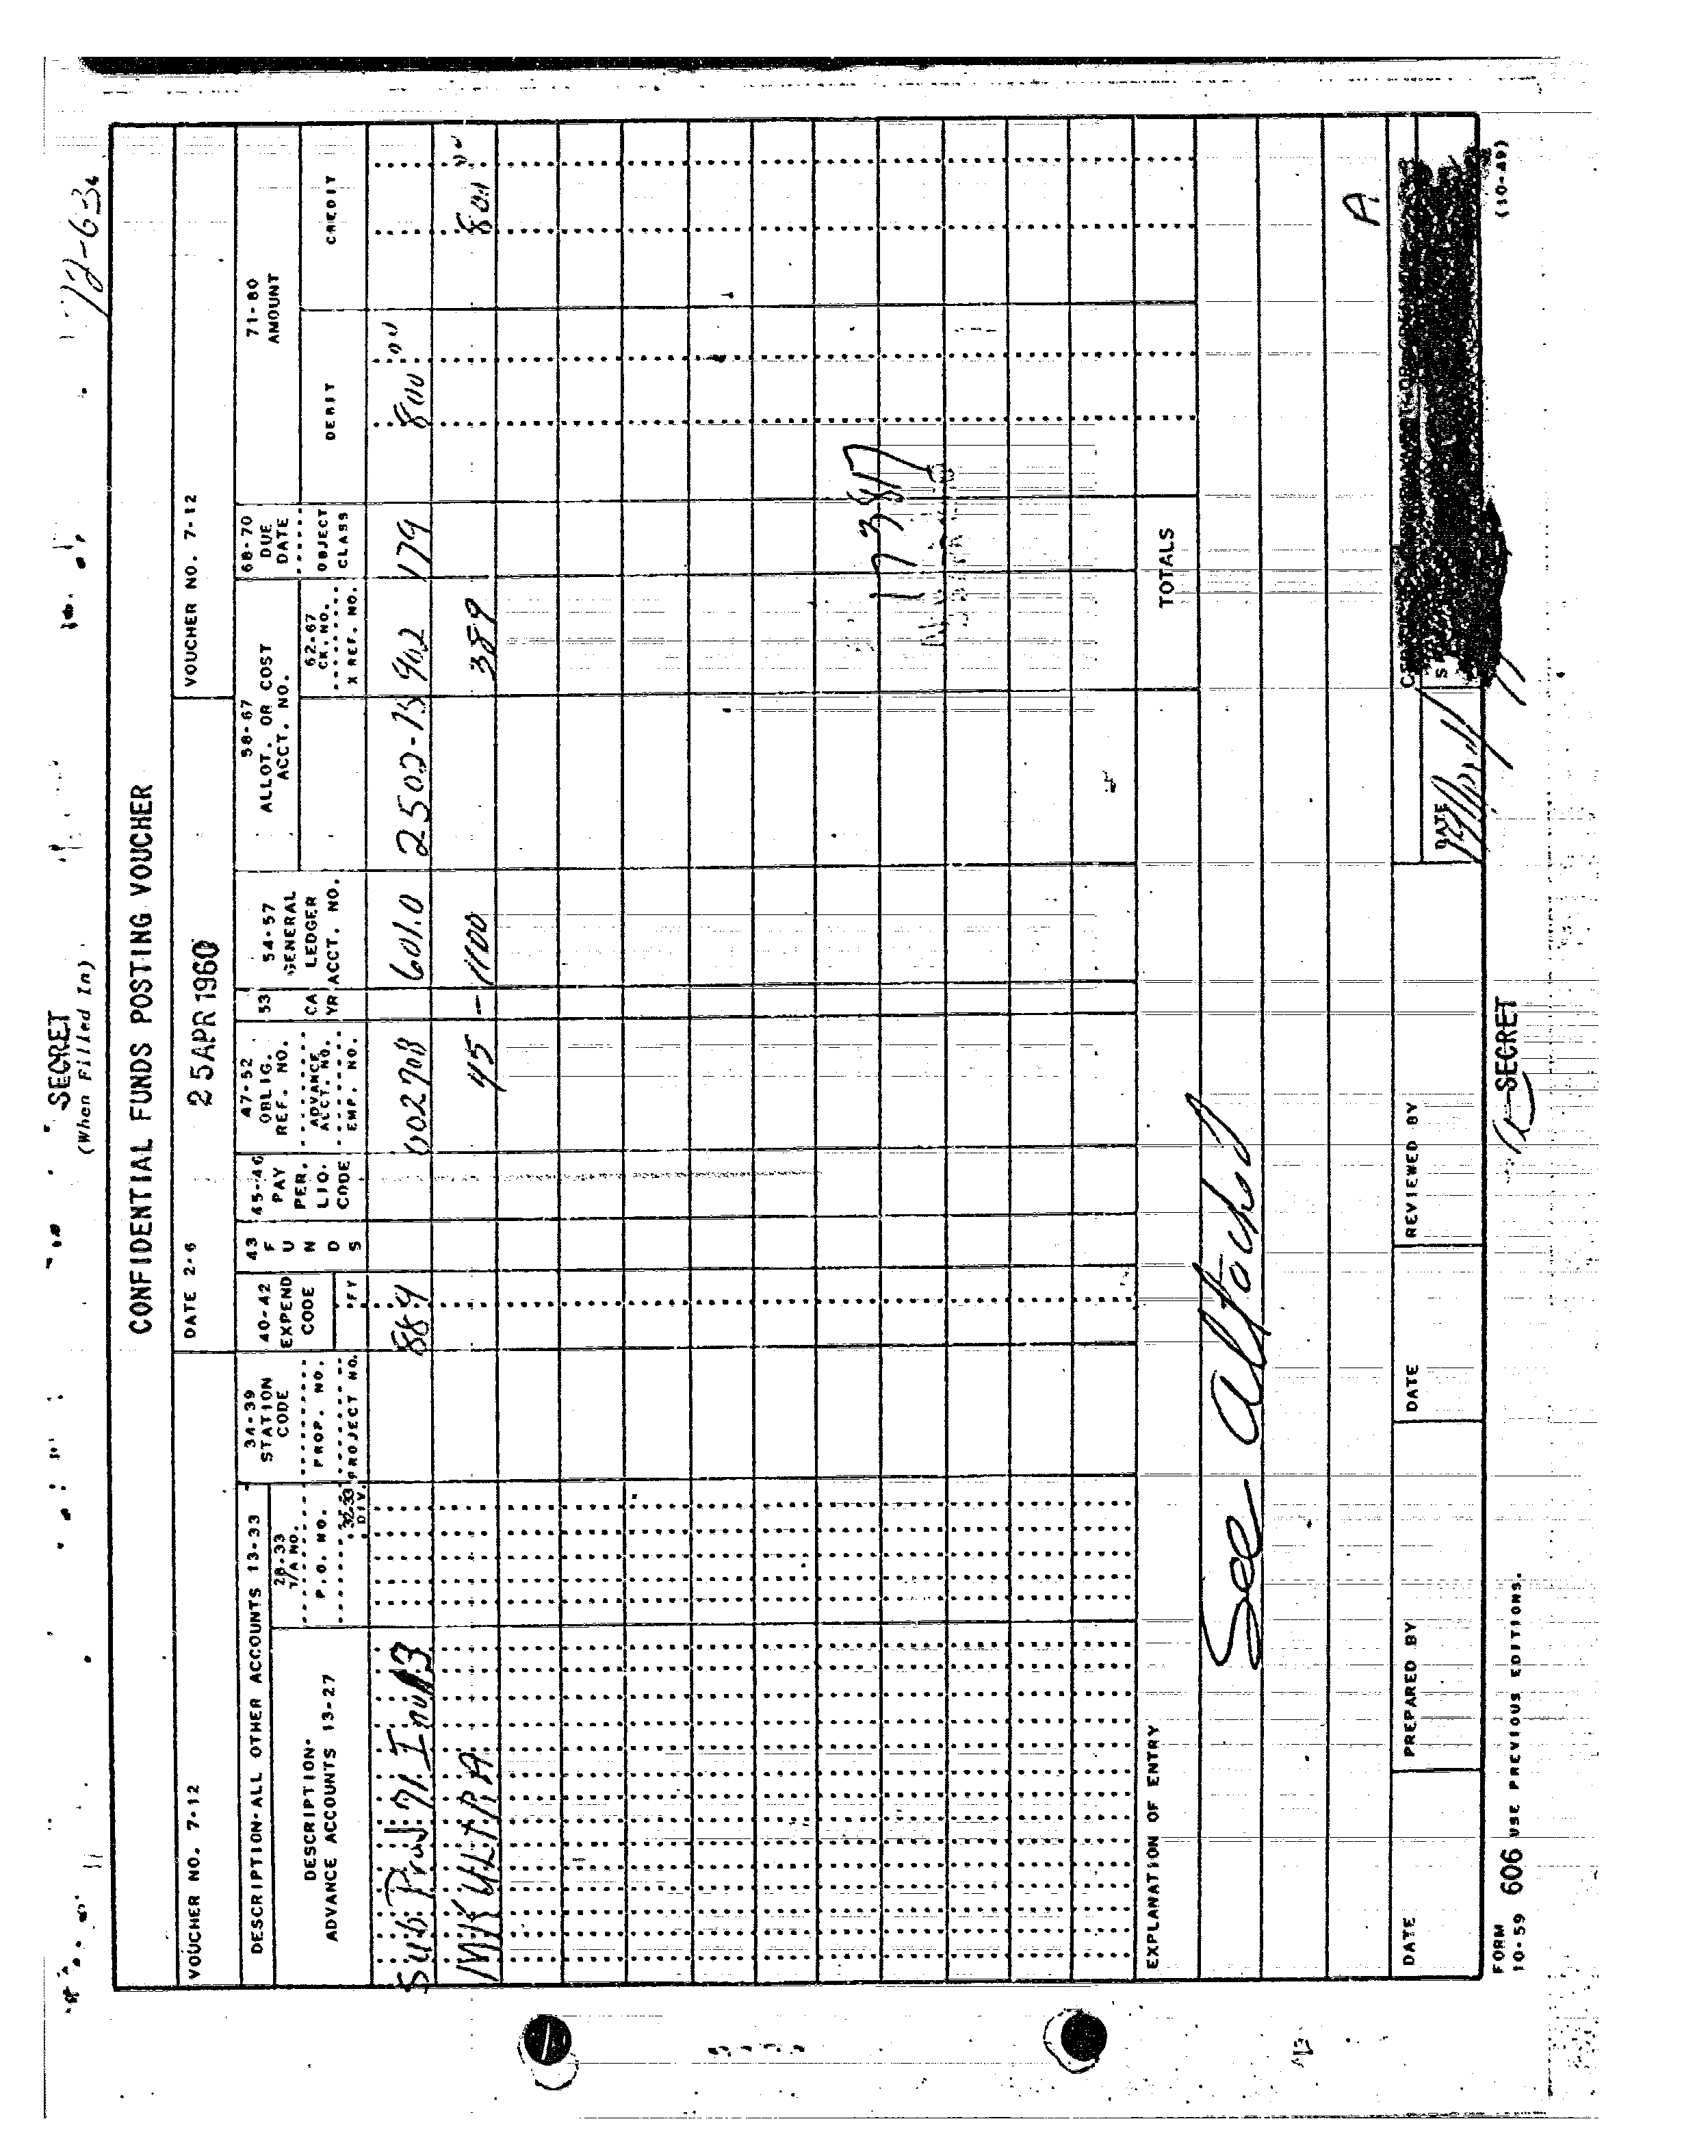 72-63
SECRET
(When Filled In)
CONFIDENTIAL FUNDS POSTING VOUCHER
VOUCHER NO. 7-12
DATE 2-6
25 APR 1960
VOUCHER NO. 7-12
DESCRIPTION-ALL OTHER ACCOUNTS 13-33
DESCRIPTION-
ADVANCE ACCOUNTS 13-27
28-33
T/A NO.
P.O. NO.
32-33
DIV.
34-39
STATION
CODE
PROP. NO.
PROJECT NO.
40-42
EXPEND
CODE
FY
43
F
U
N
D
S
45-46
PAY
PER.
LIQ.
CODE
47-52
OBLIG.
REF. NO.
ADVANCE
ACCT. NO.
EMP. NO.
53
CA
YR
54-57
GENERAL
LEDGER
ACCT. NO.
58-67
ALLOT. OR COST
ACCT. NO.
62-67
CK. NO.
X REF. NO.
68-70
DUE
DATE
OBJECT
CLASS
71-80
AMOUNT
DEBIT
CREDIT
Sub Proj 71 Inv 13 884 602708 601.0 2502-15 902 179 800 00
MKULTRA 45 - 1100 389 800 00
17387
TOTALS
EXPLANATION OF ENTRY
See Attached
A
DATE
PREPARED BY
DATE
REVIEWED BY
DATE
FORM
10-59 606 USE PREVIOUS EDITIONS.
SECRET
(10-49)